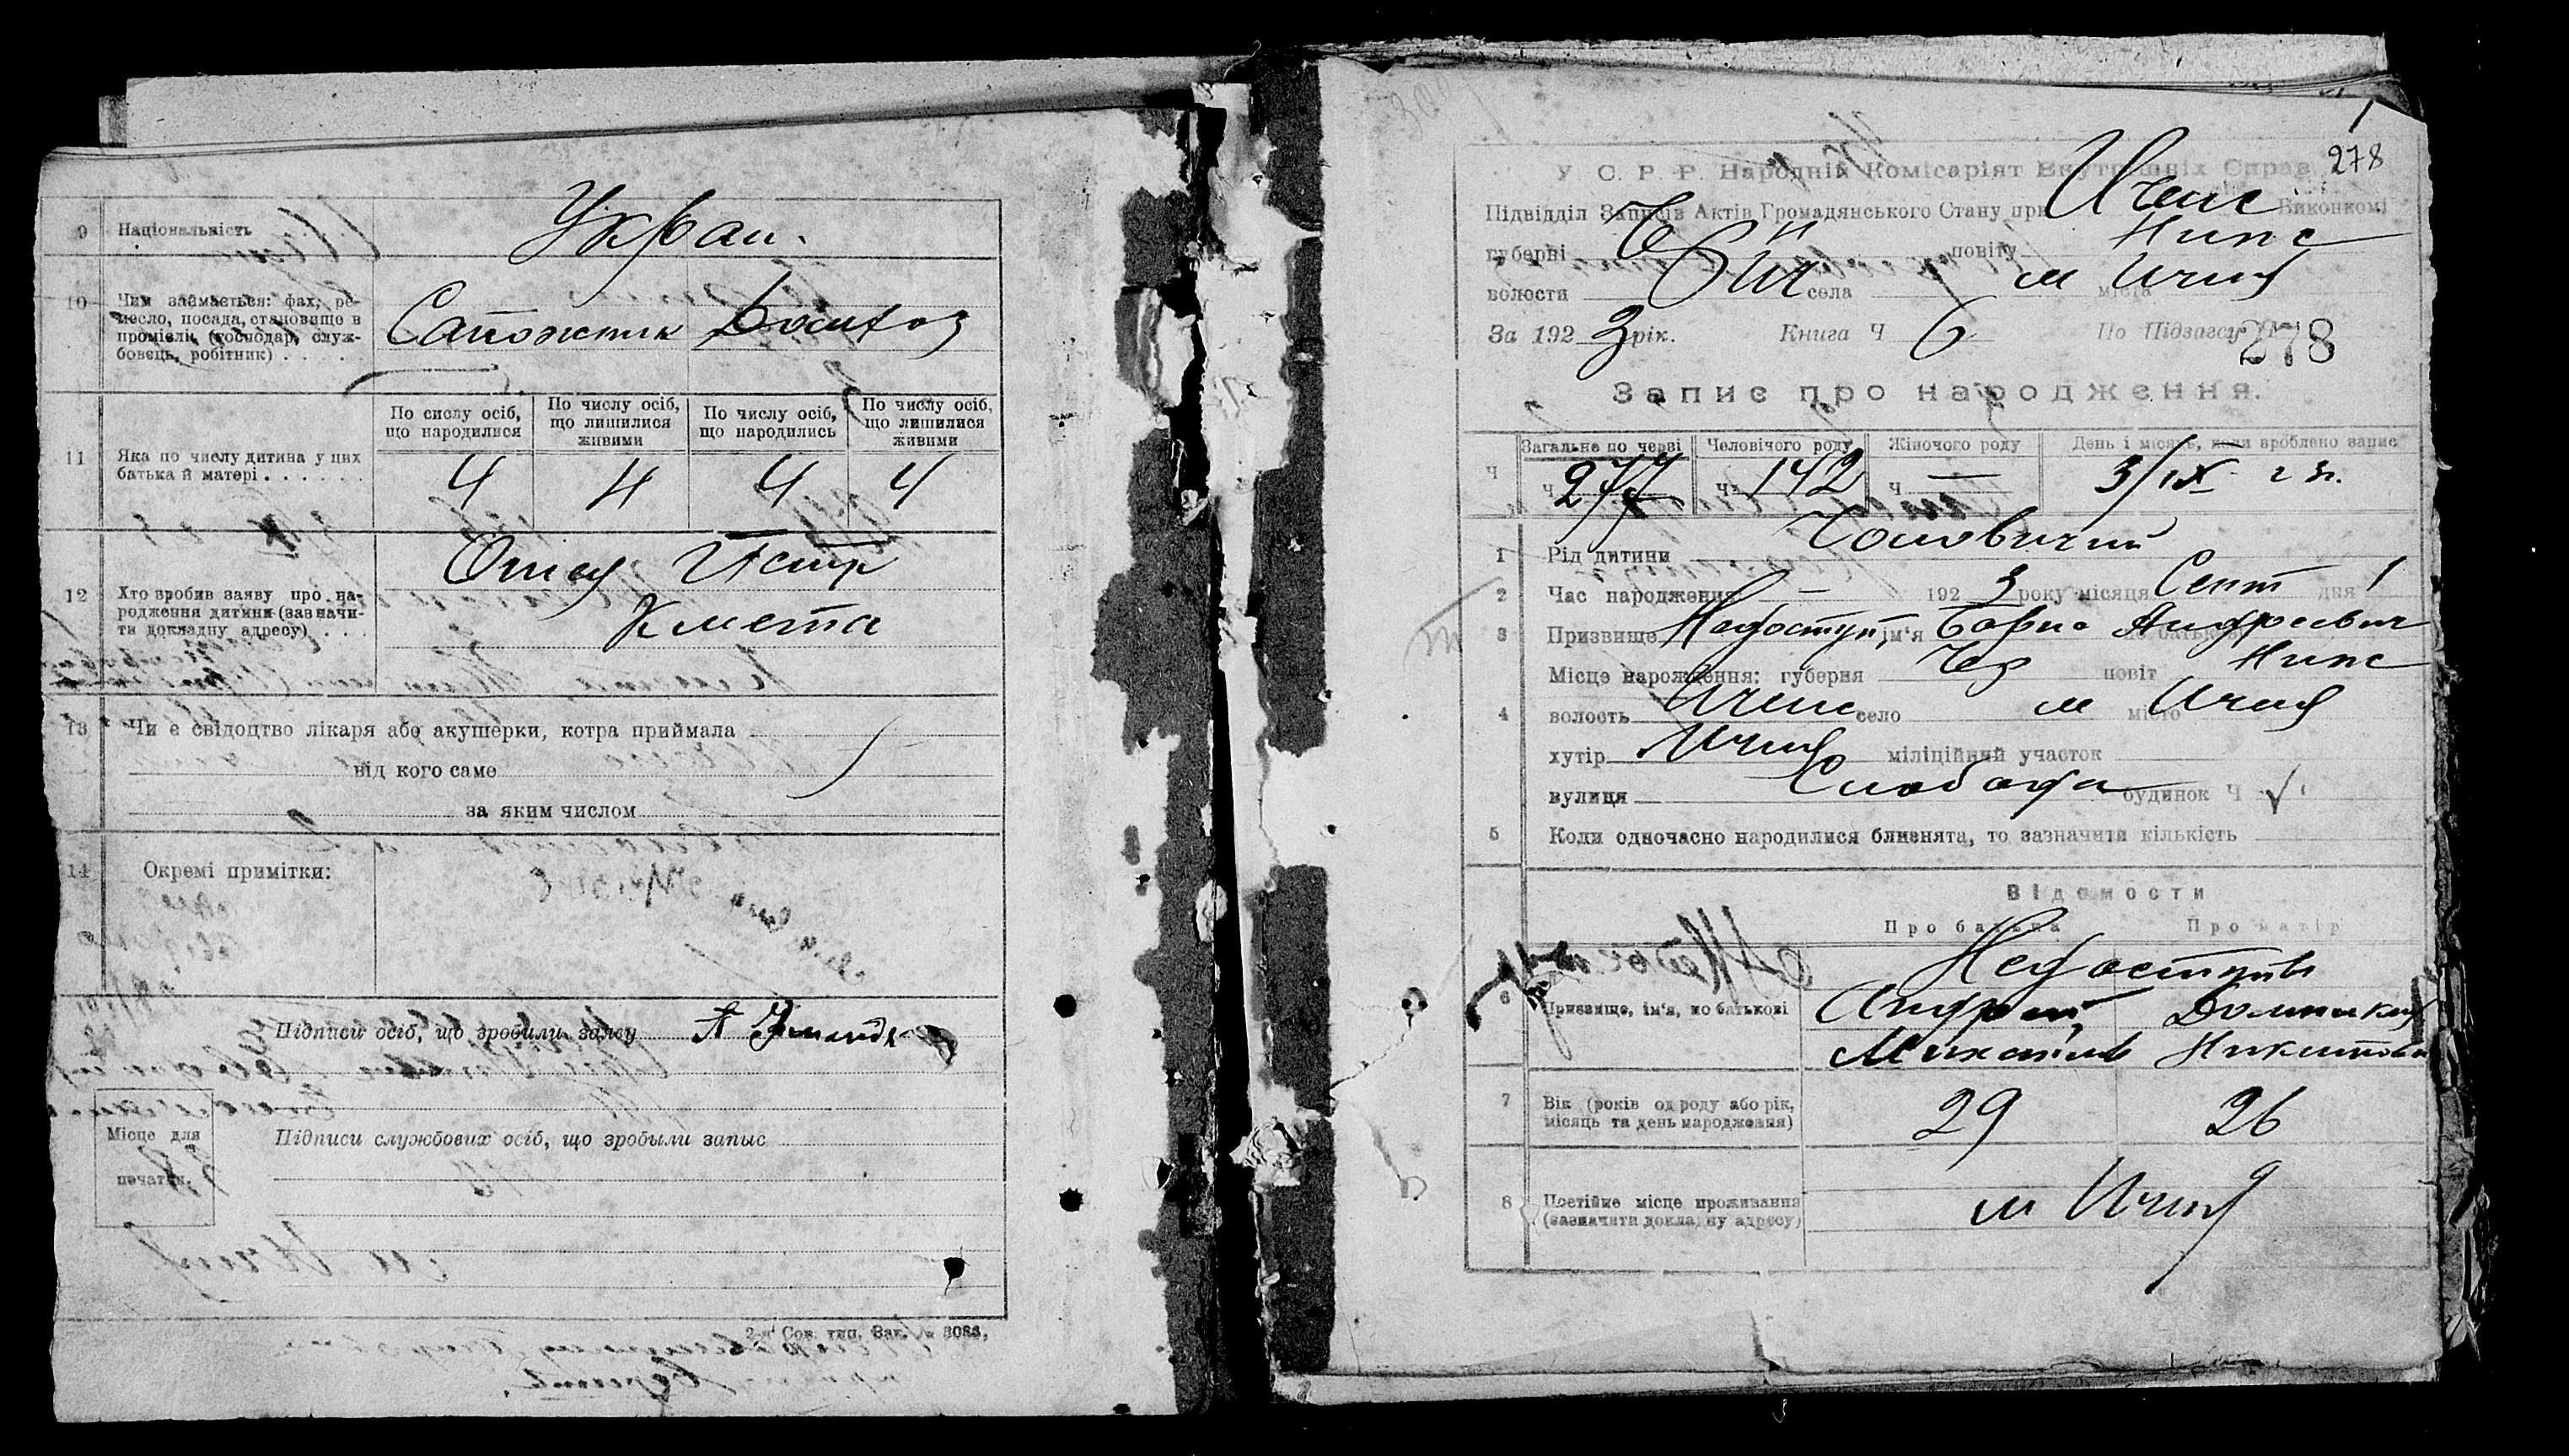 9 Національність Украи.
10 Чим займається: фах, ре-
месло, посада, становище в
промислі, (господар, служ-
бовець, робітник) . . . . .
Сапожник Домхоз
По числу осіб, що народилися
По числу осіб, що лишилися живими
По числу осіб, що народились
По числу осіб, що лишилися живими
11 Яка по числу дитина у цих
батька й матері . . . . . .
4 4 4 4
12 Хто зробив заяву про на-
родження дитини (зазначи-
ти докладну адресу) . . .
Отец
13 Чи є свідоцтво лікаря або акушерки, котра приймала
від кого саме
за яким числом
14 Окремі примітки:
Підписи осіб, що зробили заяву
Місце для
печатки.
Підписи службових осіб, що зробыли запыс
2-я Сов. тип. Зак. № 3084,
278
У. С. Р. Р. Народній Комісаріят Внутрішніх Справ
Підвідділ Записів Актів Громадянського Стану при Ичен Виконкомі
губерні Чер повіту Нипс
волости Ич села м Ичня міста
За 192 3 рік. Книга Ч 6 По Підзагсу 278
Запис про народження.
Загальне по черзі Человічого роду Жіночого роду День і місяць, коли вроблено запис
Ч ч 277 ч 142 ч — 3/IX 23.
1 Рід дитини Чоловичий
2 Час народження — 192 3 року місяця Сент дня 1
3 Призвище Недоступ ім'я Борис Андреевич
4 Місце народження: губерня Чер повіт Нипс
волость Ичен село м Ичня місто
хутір Ичня міліційний участок
вулиця Слобода будинок Ч
5 Коли одночасно народилися близнята, то зазначити кількість
Відомости
Про батька Про матір
Недоступ
6 Призвище, ім'я, по батькові Андрей Домникия
Михайлов Никитовна
7 Вік (років од роду або рік,
місяць та день народження) 29 26
8 Постійне місце проживання
(зазначити докладну адресу) м Ичня